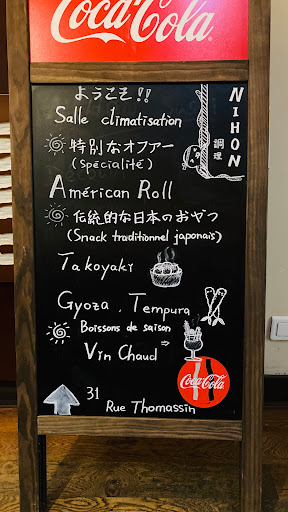 Coca-Cola
ようこそ!!
Salle climatisation
NIHON
調理
特別なオファー
(Spécialité)
Américan Roll
伝統的な日本のおやつ
(Snack traditionnel japonais)
Takoyaki
Gyoza, Tempura
Boissons de saison
Vin Chaud
Coca-Cola
31
Rue Thomassin